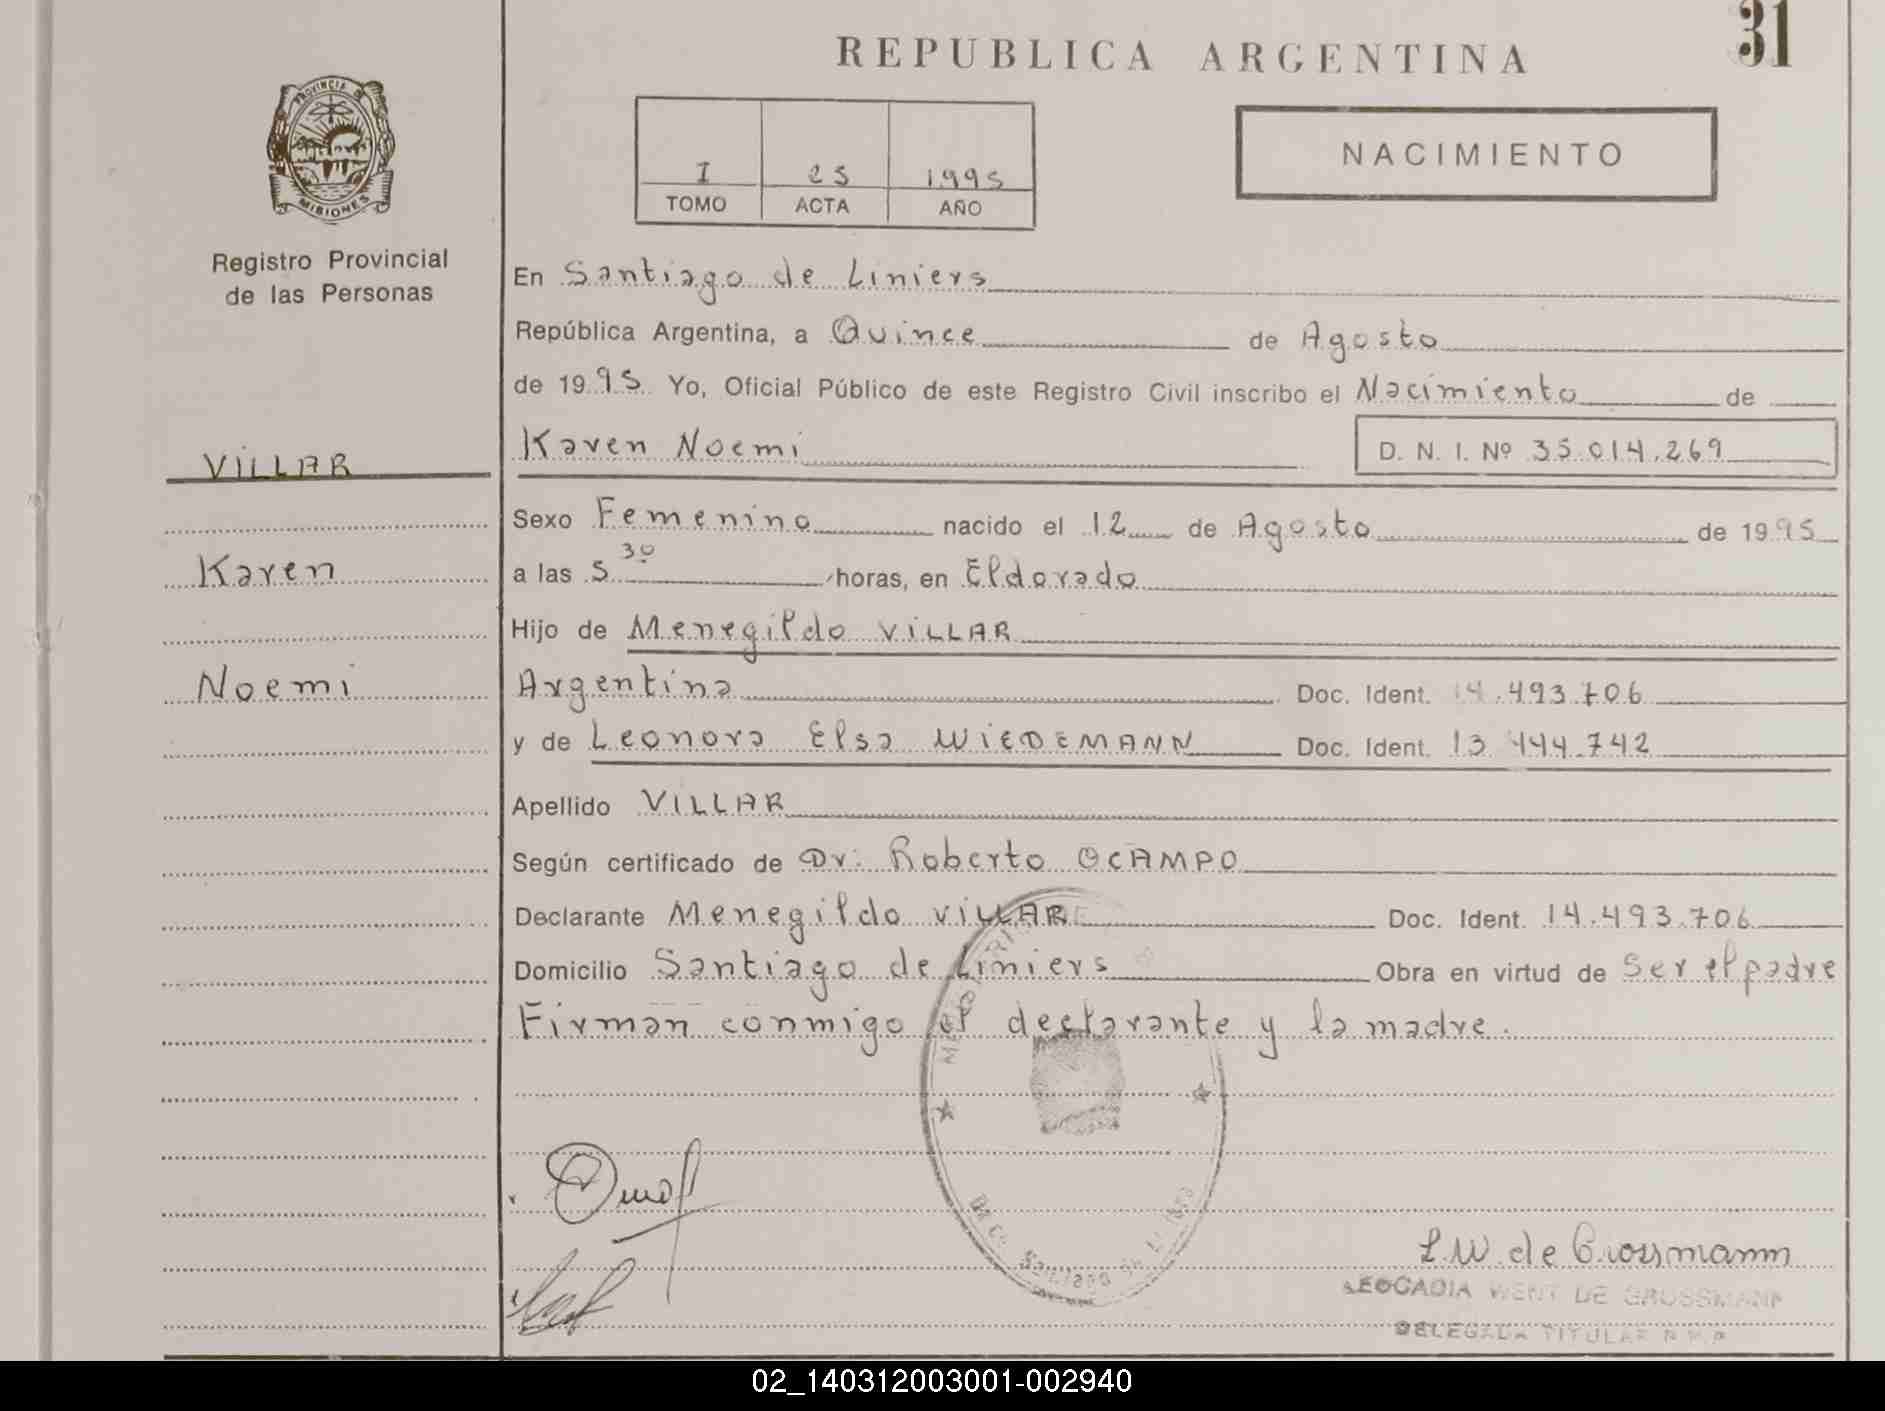 31
REPUBLICA ARGENTINA
PROVINCIA DE
MISIONES
Registro Provincial
de las Personas
I 25 1995
TOMO ACTA AÑO
NACIMIENTO
En Santiago de Liniers
República Argentina, a Quince de Agosto
de 1995 Yo, Oficial Público de este Registro Civil inscribo el Nacimiento de
VILLAR
Karen Noemi D. N. I. Nº 35.014.269
Sexo Femenino nacido el 12 de Agosto de 1995
Karen
a las 5 30 horas, en Eldorado
Hijo de Menegildo VILLAR
Noemi
Argentina Doc. Ident. 14.493.706
y de Leonora Elsa WIEDEMANN Doc. Ident. 13.444.742
Apellido VILLAR
Según certificado de Dr. Roberto OCAMPO
Declarante Menegildo VILLAR Doc. Ident. 14.493.706
Domicilio Santiago de Liniers Obra en virtud de Ser el padre
Firman conmigo el declarante y la madre.
L.W. de Grossmann
LEOCADIA WENT DE GROSSMANN
DELEGADA TITULAR R.P.P.
02_140312003001-002940